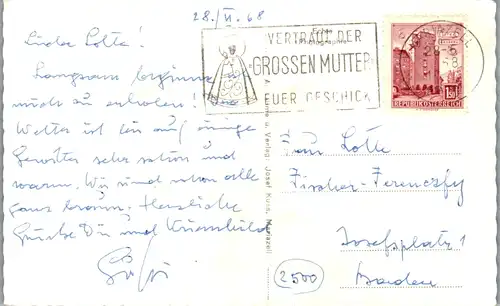 28./VI. 68
Liebe Lotte!
Langsam beginne
mich zu erholen! Das
Wetter ist bis auf einige
Gewitter sehr schön und
warm. Wir sind schon alle
ganz braun. Herzliche
Grüße Dir und
VERTRAUT DER
GROSSEN MUTTER
EUER GESCHICK
REPUBLIK ÖSTERREICH
1.50
u. Verlag: Josef Kuss, Mariazell
Frau Lotte
Fischer-Ferenczfy
Josefsplatz 1
2500
Baden